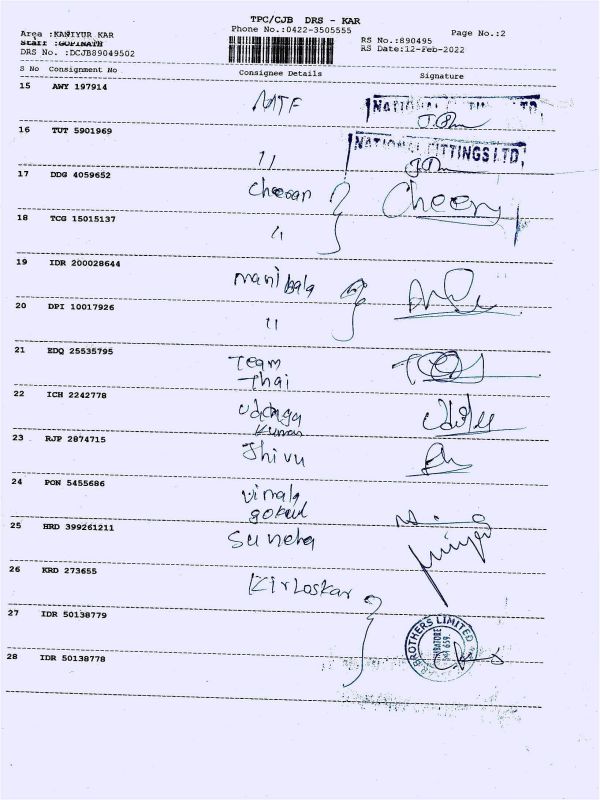 TPC/CJB DRS - KAR
Area :KANIYUR KAR Phone No.:0422-3505555 Page No.:2
Staff :GOPINATH RS No.:890495
DRS No. :DCJB89049502 RS Date:12-Feb-2022
S No Consignment No Consignee Details Signature
15 AWY 197914
NTF NATIONAL FITTINGS LTD,
16 TUT 5901969
11 NATIONAL FITTINGS LTD,
17 DDG 4059652
Cheeran Cheery
18 TCG 15015137
11
19 IDR 200028644
manibala
20 DPI 10017926
11
21 EDQ 25535795
Team
Thai
22 ICH 2242778
Kumar
23 RJP 2874715
Shivu
24 PON 5455686
vimala
gokul
25 HRD 399261211
Suneha
26 KRD 273655
Kirloskar
27 IDR 50138779
BROTHERS LIMITED
28 IDR 50138778